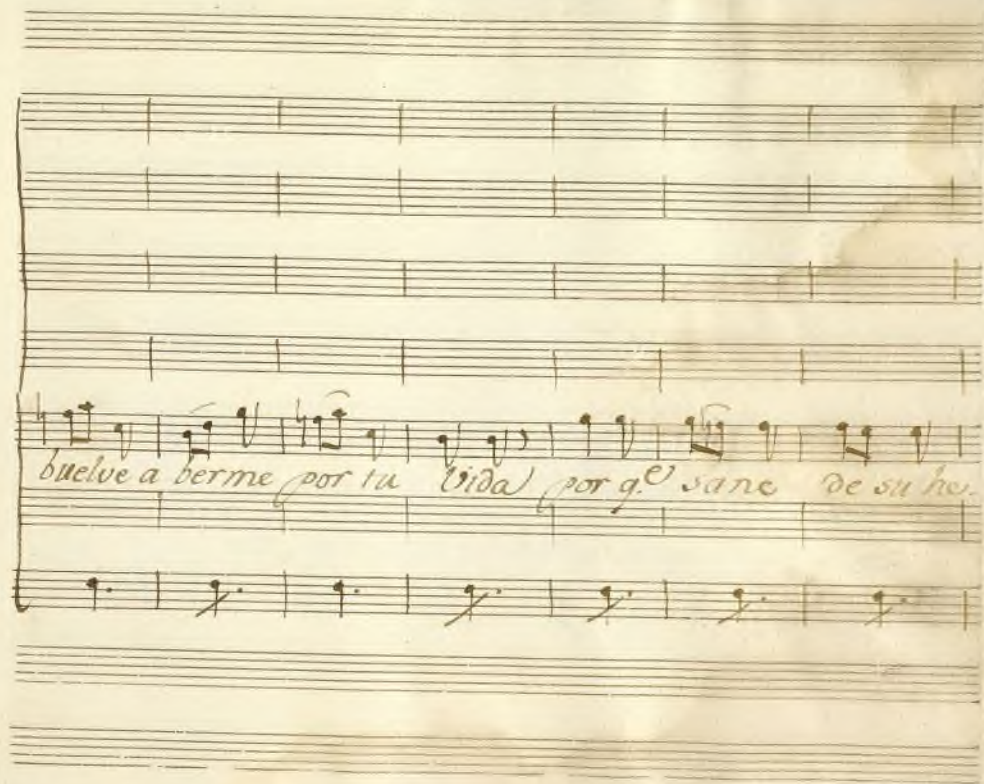 buelve a berme por tu vida por q.e sane de su he-